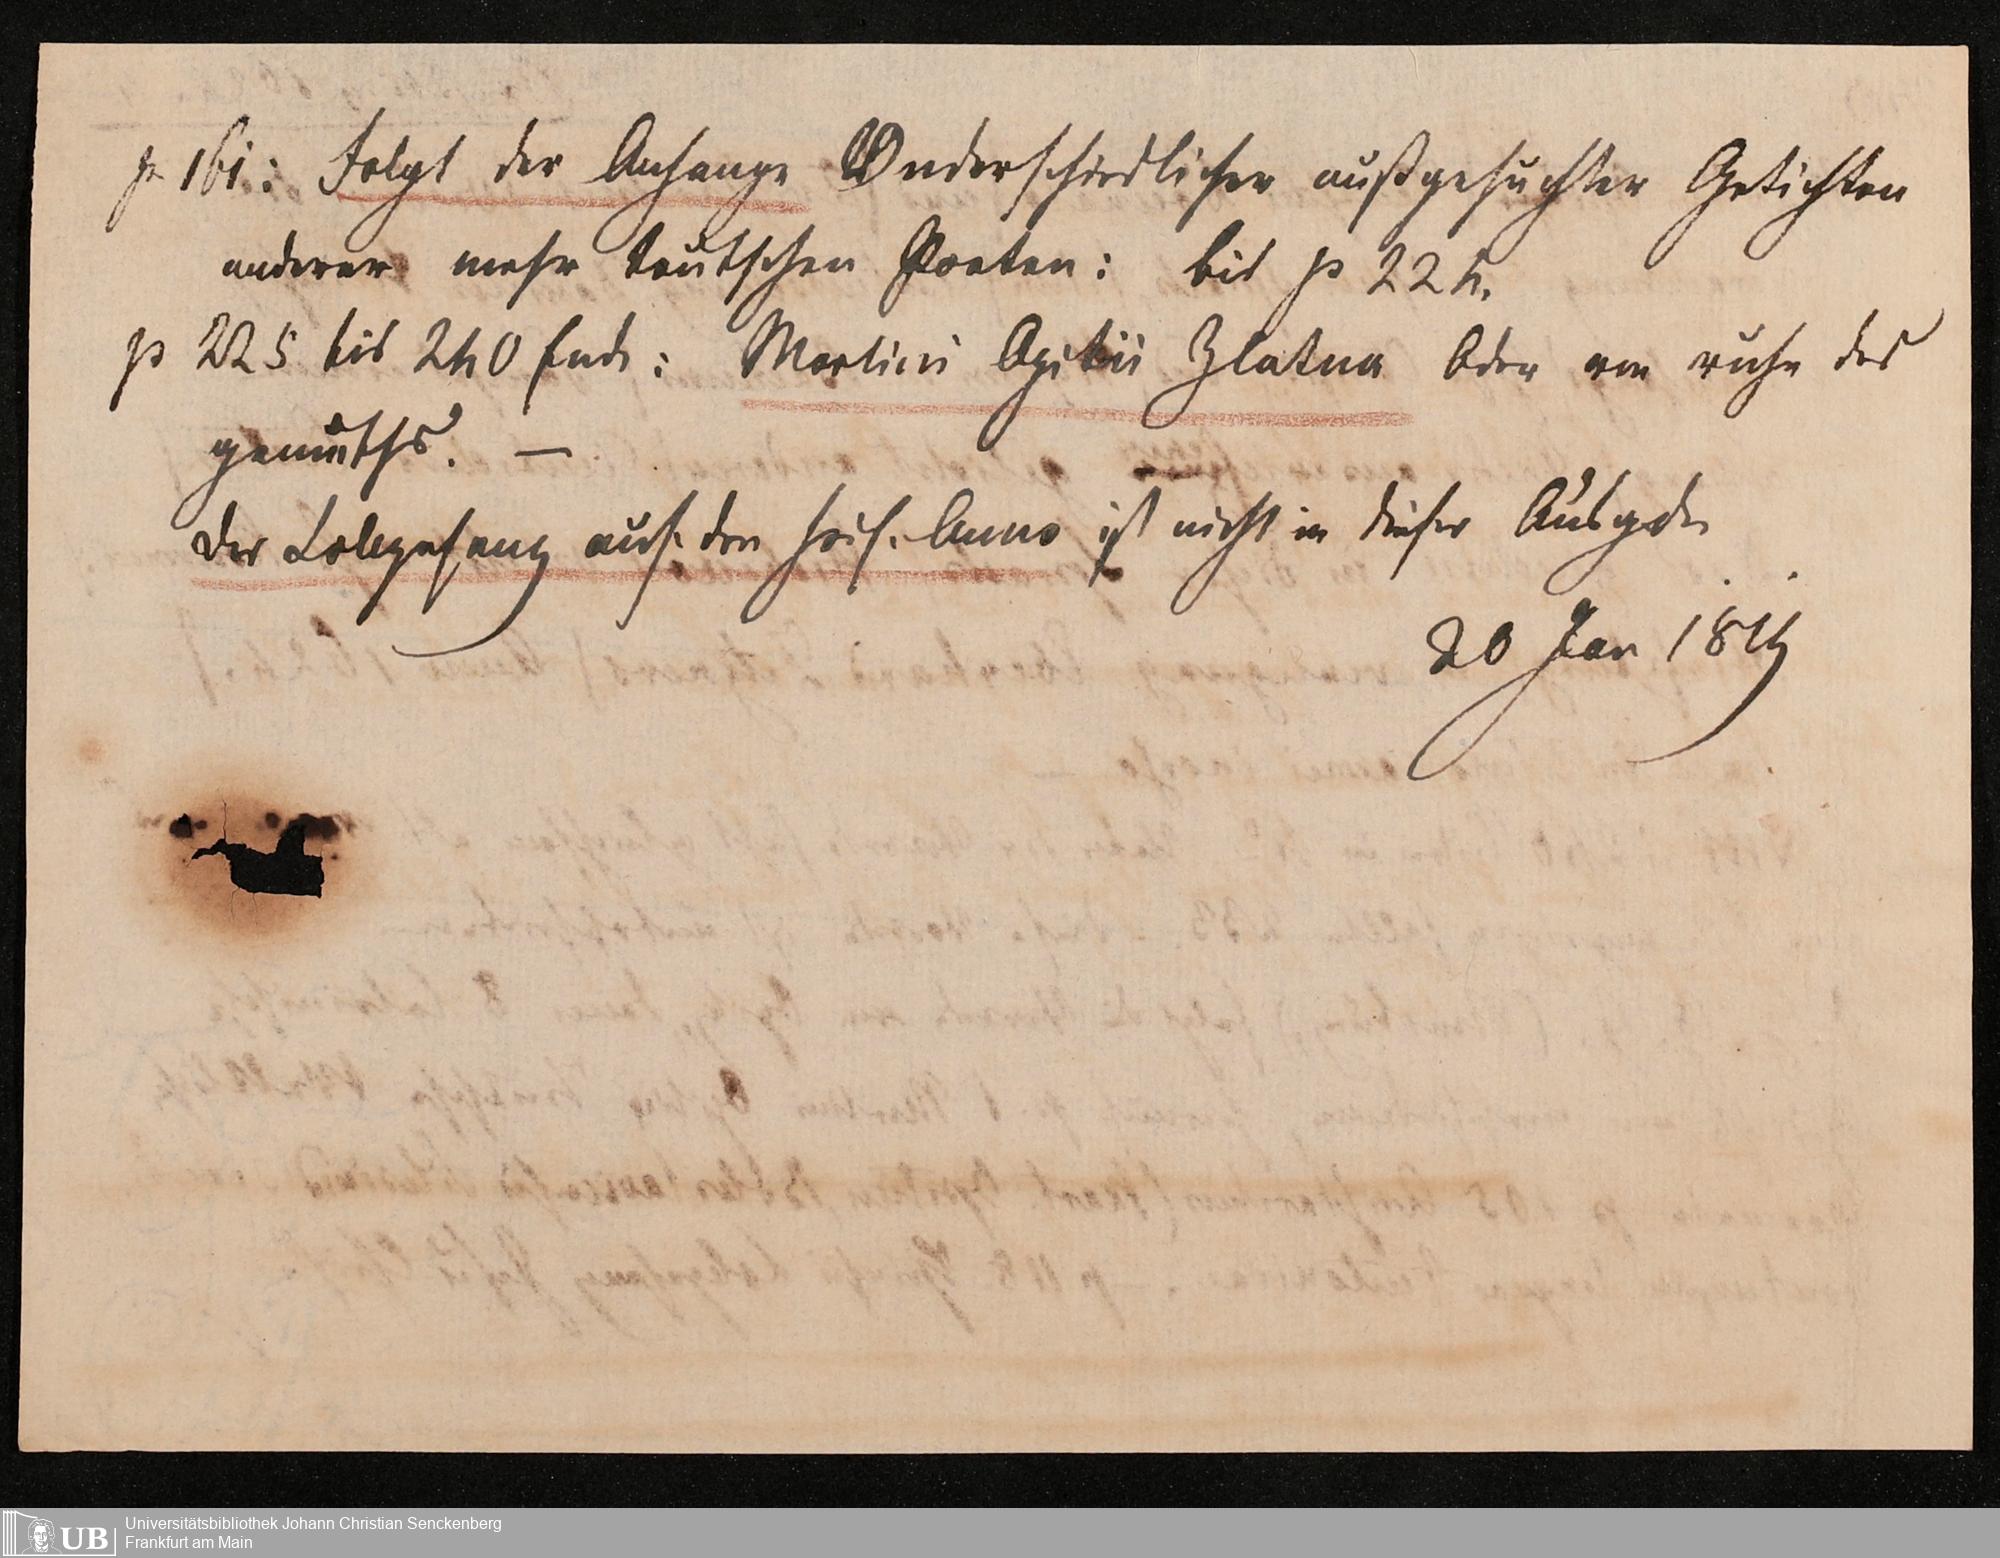 p 161: Folgt der Anhange Underschiedlicher außgesuchter Getichten
anderer mehr teutschen Poeten: bis p 224.
p 225 bis 240 Ende: Martini Opitii Zlatna Oder von ruhe des
gemüths. —
Der Lobgesang auf den heil. Anno ist nicht in dieser Ausgabe
20 Jan
UB
Universitätsbibliothek Johann Christian Senckenberg
Frankfurt am Main